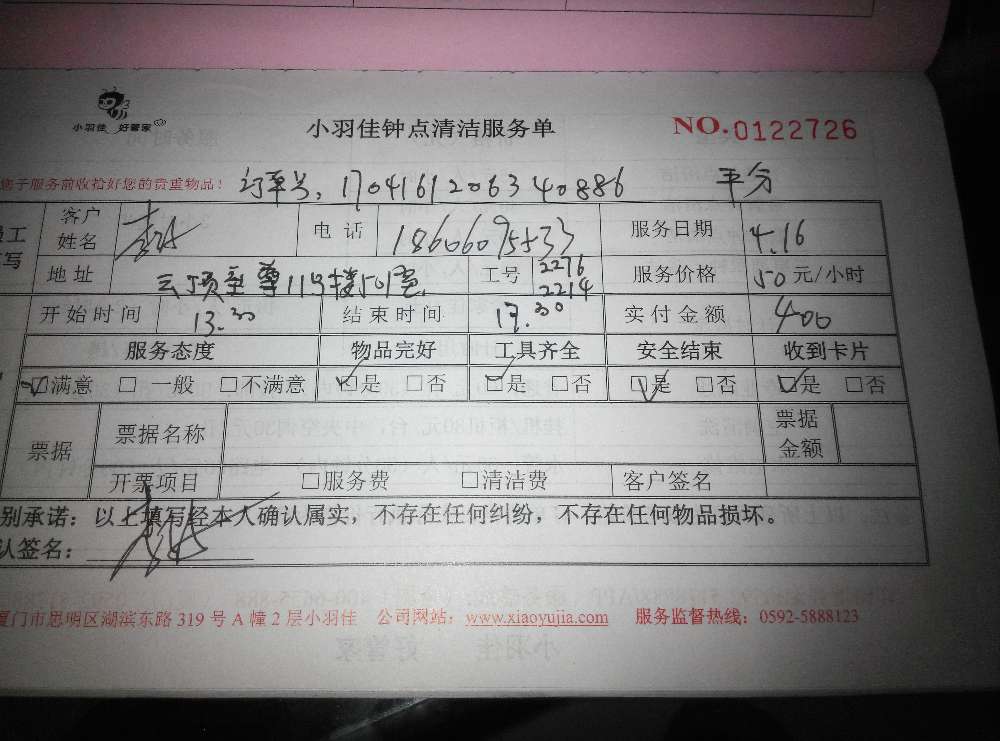 小羽佳 好管家
小羽佳钟点清洁服务单 NO.0122726
您于服务前收拾好您的贵重物品! 订单号:1704161206340886 平分
员工 客户姓名 电话 18606095533 服务日期 4.16
填写 地址 云顶至尊11号楼501室 工号 2276 2214 服务价格 50元/小时
开始时间 13.30 结束时间 17.30 实付金额 400
服务态度 物品完好 工具齐全 安全结束 收到卡片
☑满意 □一般 □不满意 ☑是 □否 ☑是 □否 ☑是 □否 ☑是 □否
票据 票据名称 票据金额
开票项目 □服务费 □清洁费 客户签名
别承诺:以上填写经本人确认属实,不存在任何纠纷,不存在任何物品损坏。
认签名:
厦门市思明区湖滨东路 319 号 A 幢 2 层小羽佳 公司网站:www.xiaoyujia.com 服务监督热线:0592-5888123